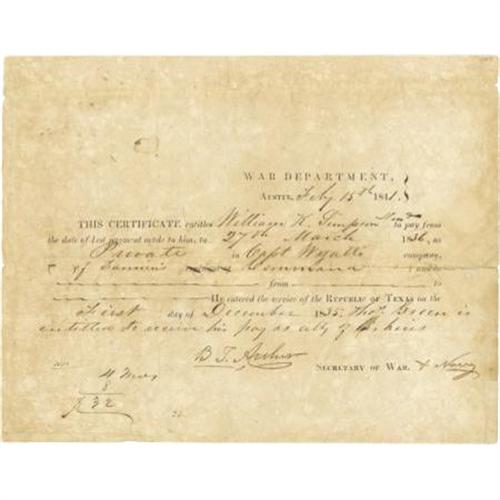 WAR DEPARTMENT,
Austin, Feby 15th 1841.
THIS CERTIFICATE entitles William K. Simpson to pay from
the date of last payment made to him, to 27th March 1836, as
Private in Capt Wyatts company,
of Fannins Command and to
from to
He entered the service of the REPUBLIC OF TEXAS on the
First day of December 1835. Thos. Green is
entitled to receive his pay as atty of
B. T. Archer
SECRETARY OF WAR. & Navy
4 Mos
8
$32